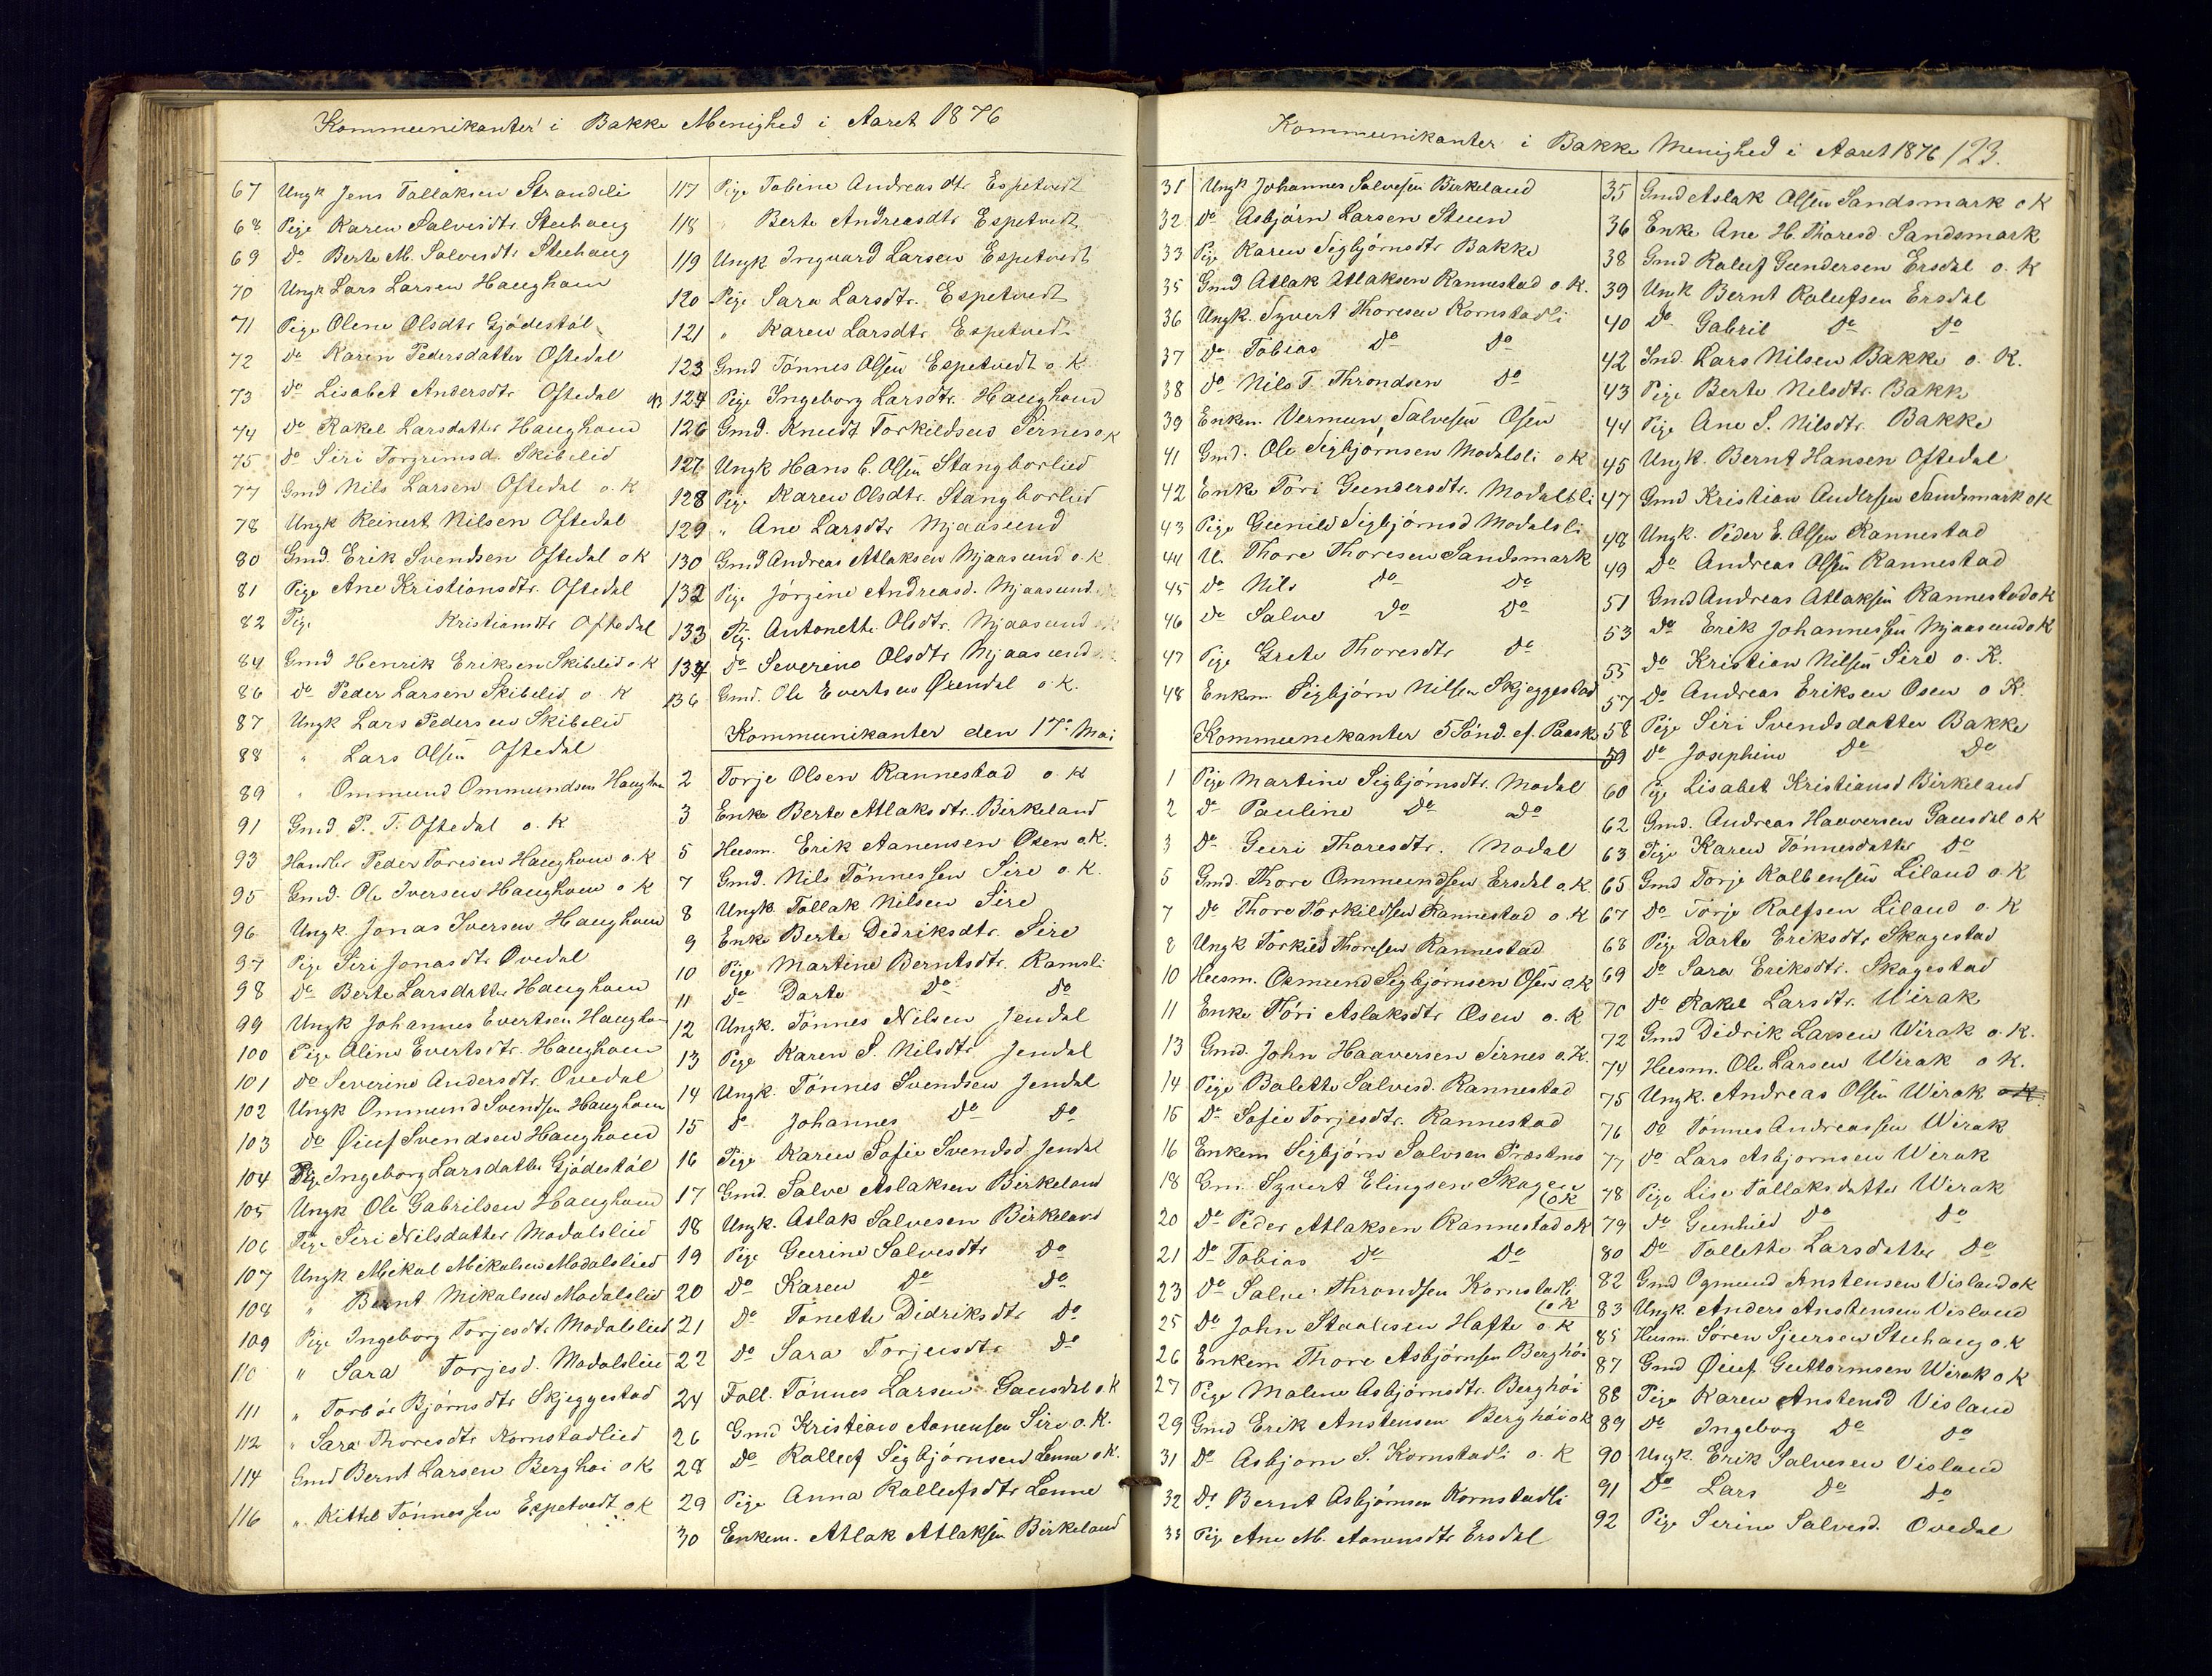 Kommunikanter i Bakke Menighed i Aaret 1876
67 Ungk Jens Tallaksen Strandli
68 Pige Karen Salvesdtr. Steehaug
69 do Berte M. Salvesdtr Steehaug
70 Ungk Lars Larsen Haughom
71 Pige Olene Olsdtr Gjödestöl
72 do Karen Pedersdatter Oftedal
73 do Lisabet Andersdtr Oftedal
74 do Rakel Larsdatter Haughom
75 do Siri Torgrimsd. Skibelid
77 Gmd Nils Larsen Oftedal o. K
78 Ungk Reinert Nilsen Oftedal
80 Gmd. Erik Svendsen Oftedal o K
81 Pige Ane Kristiansdtr. Oftedal
82 Pige Kristiansdtr Oftedal
84 Gmd Henrik Eriksen Skibelid o K
86 do Peder Larsen Skibelid o. K
87 Ungk Lars Pedersen Skibelid
88 " Lars Olsen Oftedal
89 " Ommund Ommundsen Haughom
91 Gmd. P. T. Oftedal o. K
93 Handler Peder Toresen Haughom o. K
95 Gmd. Ole Iversen Haughom o K
96 Ungk. Jonas Iversen Haughom
97 Pige Siri Jonasdtr Ovedal
98 do Berte Larsdatter Haughom
99 Ungk Johannes Evertsen Haughom
100 Pige Oline Evertsdtr. Haughom
101 do Severine Andersdtr. Ovedal
102 Ungk Ommund Svendsen Haughom
103 do Øiuf Svendsen Haughom
104 Pige Ingeborg Larsdatter Gjödestöl
105 Ungk Ole Gabrilsen Haughom
106 Pige Siri Nilsdatter Modalslied
107 Ungk Mikal Mikalsen Modalslied
108 " Bernt Mikalsen Modalslid
109 Pige Ingeborg Torjesdtr. Modalslied
110 " Sara Torjesd. Modalslied
111 " Torbör Bjørnsdtr Skjeggestad
112 " Sara Thoresdtr Kornstadlied
114 Gmd Bernt Larsen Berghöi o K
116 " Kittel Tönnessen Espetvedt o K
117 Pige Tobine Andreasdt. Espetvedt
118 " Berte Andreasdtr Espetvedt
119 Ungk Ingvard Larsen Espetvedt
120 Pige Sara Larsdtr. Espetvedt
121 " Karen Larsdtr Espetvedt
123 Gmd Tönnes Olsen Espetvedt o K
124 Pige Ingeborg Larsdtr. Haughom
126 Gmd. Knudt Torkildsen Sirnes o K
127 Ungk Hans C. Olsen Stangborlied
128 Pige Karen Olsdtr. Stangborlied
129 " Ane Larsdtr Mjaasund
130 Gmd Andreas Atlaksen Mjaasund o. K
132 Pige Jörgine Andreasd. Mjaasund
133 Pig. Antonette Olsdtr. Mjaasund
134 do Severine Olsdtr Mjaasund
136 Gmd. Ole Evertsen Øiendal o. K.
Kommunikanter den 17de Mai
2 Torje Olsen Rannestad o. K
3 Enke Berte Atlaksdtr. Birkeland
5 Huusm. Erik Aanensen Osen o. K.
7 Gmd. Nils Tönnessen Sire o. K.
8 Ungk Tallak Nilsen Sire
9 Enke Berte Dedriksdtr. Sire
10 Pige Martine Berntsdtr. Ramsli
11 do Darte do do
12 Ungk. Tönnes Nilsen Jendal
13 Pige Karen S. Nilsdtr Jendal
14 Ungk. Tönnes Svendsen Jendal
15 do Johannes do do
16 Pige Karen Sofie Svendsd. Jendal
17 Gmd. Salve Aslaksen Birkeland
18 Ungk. Aslak Salvesen Birkeland
19 Pige Gurine Salvesdtr do
20 do Karen do do
21 do Tonette Didriksdtr do
22 do Sara Torjusdtr do
24 Foll. Tönnes Larsen Gausdal o. K
26 Gmd Kristian Aanensen Sire o. K.
28 do Rolleef Sigbjörnsen Lenne o K.
29 Pige Anna Rolleefsdtr Lenne
30 Enkem. Atlak Atlaksen Birkeland
Kommunikanter i Bakke Menighed i Aaret 1876 123.
31 Ungk Johannes Salvesen Birkeland
32 do Asbjörn Larsen Steen
33 Pige Karen Sigbjørnsdtr Bakke
35 Gmd Atlak Atlaksen Rannestad o K.
36 Ungk. Syvert Thoresen Kornstadli
37 do Tobias do do
38 do Nils T. Throndsen do
39 Enkem. Vermun Salvesen Osen
41 Gmd. Ole Sigbjörnsen Modalsli o K
42 Enke Töri Gundersdtr. Modalsli
43 Pige Gunild Sigbjörnsd Modalsli
44 U. Thore Thoresen Sandsmark
45 do Nils do do
46 do Salve do do
47 Pige Grete Thoresdtr do
48 Enkem Sigbjørn Nilsen Skjeggestad
Kommunekanter 5 Sönd. ef. Paaske
1 Pige Martine Sigbjörnsdtr. Modal
2 do Pauline do do
3 do Guri Thoresdtr. Modal
5 Gmd. Thore Ommundsen Ersdal o. K.
7 do Thore Torkildsen Rannestad o. K
8 Ungk Torkild Thoresen Rannestad
10 Huusm. Osmund Sigbjørnsen Osen o. K
11 Enke Töri Aslaksdtr Osen o. K
13 Gmd. John Haaversen Sirnes o. K.
14 Pige Balette Salvesd. Rannestad
15 do Sofie Torjesdtr. Rannestad
16 Enkem Sigbjörn Salvsen Præstmo
18 Gm. Syvert Elingsen Skagen
o K
20 do Peder Atlaksen Rannestad o K
21 do Tobias do do
23 do Salve Throndsen Kornstadli
o K
25 do John Staalesen Hafte o. K
26 Enkem Thore Asbjörnsen Berghöi
27 Pige Malene Asbjörnsdtr. Berghöi
29 Gmd Erik Anstensen Berghöi o K
31 do Asbjörn S. Kornstadli o. K
32 do Bernt Asbjörnsen Kornstadli
33 Pige Ane M. Aanensdtr Ersdal
35 Gmd Aslak Olsen Sandsmark o K
36 Enke Ane H. Thoresd Sandsmark
38 Gmd Roluf Gundersen Ersdal o. K
39 Ungk Bernt Rolufsen Ersdal
40 do Gabril do do
42 Ind. Lars Nilsen Bakke o. K.
43 Pige Berte Nelsdtr. Bakke
44 Pige Ane S. Nilsdtr. Bakke
45 Ungk. Bernt Hansen Oftedal
47 Gmd Kristian Andersen Sandsmark o K
48 Ungk. Peder E. Olsen Rannestad
49 do Andreas Olsen Rannestad
51 Gmd Andreas Atlaksen Rannestad o K
53 do Erik Johannessen Mjaasund o K
55 do Kristian Nilsen Sire o. K.
57 do Andreas Eriksen Osen o K.
58 Pige Siri Svendsdatter Bakke
59 do Josephine do do
60 Pige Lisabet Kristiansd Birkeland
62 Gmd. Andreas Haaversen Gausdal o K
63 Pige Karen Tönnesdatter do
65 Gmd Torje Kolbensen Liland o. K
67 do Torje Rolfsen Liland o. K
68 Pige Darte Eriksdtr Skagestad
69 do Sara Eriksdtr. Skagestad
70 do Rakel Larsdtr. Wirak
72 Gmd Didrik Larsen Wirak o. K.
74 Huusm. Ole Larsen Wirak o K.
75 Ungk. Andreas Olsen Wirak o K.
76 do Tönnes Andreassen Wirak
77 do Lars Asbjornsen Wirak
78 Pige Lise Tallaksdatter Wirak
79 do Gunhild do do
80 do Tollette Larsdatter do
82 Gmd Ogmund Anstensen Visland o K
83 Ungk. Anders Anstensen Visland
85 Huusm. Sören Sjursen Steehaug o. K
87 Gmd Øiuf Guttormsen Wirak o K
88 Pige Karen Anstensd Visland
89 do Ingeborg do do
90 Ungk. Erik Salvesen Visland
91 do Lars do do
92 Pige Serine Salvesd. Ovedal